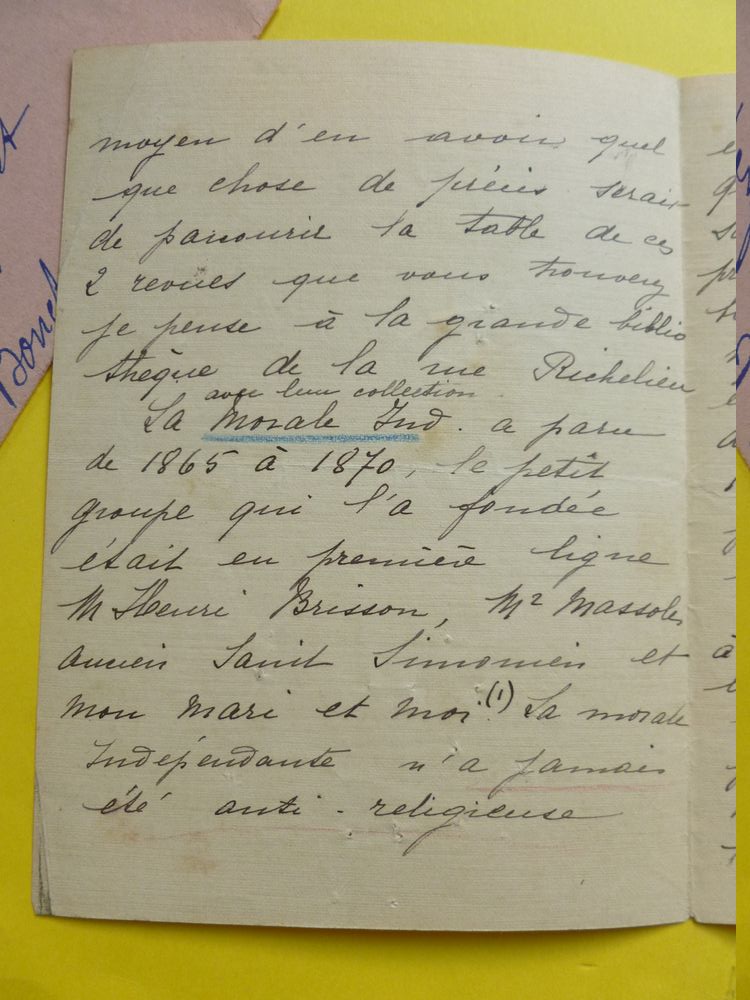 moyen d'en avoir quel
que chose de précis serait
de parcourir la table de ces
2 revues que vous trouverez
je pense à la grande biblio
thèque de la rue Richelieu
avec leur collection
La Morale Ind. a paru
de 1865 à 1870, le petit
groupe qui l'a fondée
était en première ligne
M Henri Brisson, Mr Massol
ancien Saint Simonien et
mon mari et moi.(1) La morale
Indépendante n'a jamais
été anti-religieuse